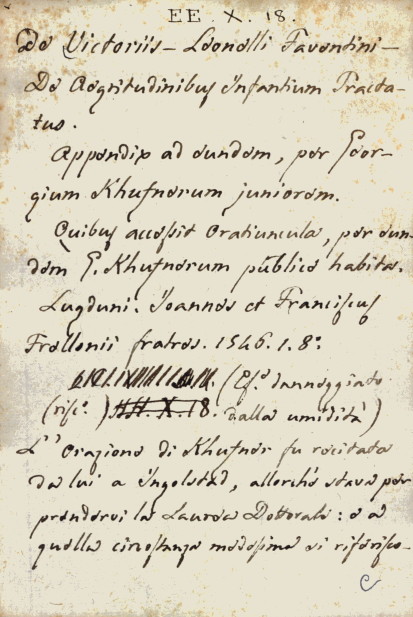 EE. X. 18.
De Victoriis - Leonelli Faventini -
De Aegritudinibus Infantium Tracta-
tus.
Appendix ad eundem, per Geor-
gium Khufnerum juniorem.
Quibus accessit Oratiuncula, per eun-
dem G. Khufnerum públice habita.
Lugduni. Joannes et Franciscus
Frellonii fratres. 1546. 1. 8.º
(Es.e danneggiato
(risc.º) HH. X. 18. dalla umidità)
L'Orazione di Khufner fu recitata
da lui a Ingolstad, allorchè stava per
prendervi la Laurea Dottorale: e a
quella circostanza medesima si riferisco-